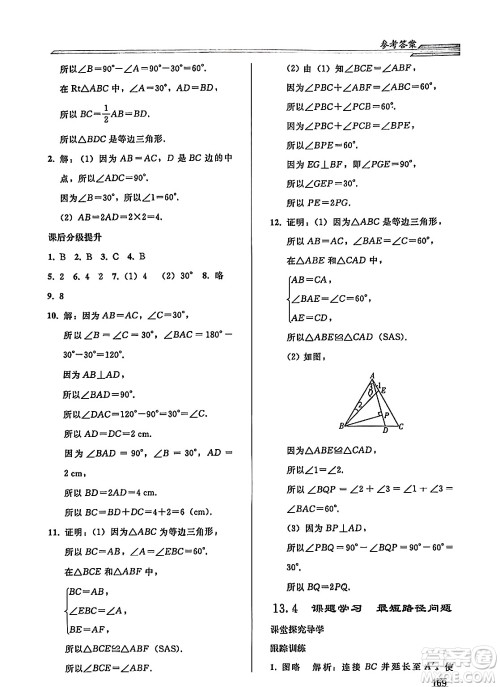 参考答案
所以∠B=90°-∠A=90°-30°=60°.
在 Rt△ABC 中,∠A=30°,
所以 BC=1/2AB=BD.
所以△BDC 是等边三角形.
2. 解:(1) 因为 AB=AC,D 是 BC 边的中
点,所以∠ADC=90°.
(2) AB=2AD=2×2=4.
课后分级提升
1. B 2. B 3. C 4. B
5. 2 6. 4 2 7. (1) 4 (2) 30° 8. 略
9. 8
10. 解:因为 AB=AC,∠C=30°,
所以∠B=∠C=30°,所以∠BAC=180°-
30°-30°=120°.
因为 AB⊥AD,
所以∠BAD=90°.
所以∠DAC=120°-90°=30°.
所以∠DAC=∠C.
所以 AD=DC=2 cm.
因为∠BAD=90°,∠B=30°,
所以 BD=2AD=4 cm.
所以 BC=BD+DC=4+2=6 (cm).
11. 证明:(1) 因为△ABC 为等边三角形,
所以 BC=AB,∠A=∠EBC=60°.
所以在△BCE 与△ABF 中,
BC=AB,
∠EBC=∠A,
BE=AF,
所以△BCE≌△ABF (SAS).
所以 CE=BF.
(2) 由 (1) 知∠BCE=∠ABF,
所以∠PBC+∠PCB=
∠PBC+∠ABF=∠ABC=60°.
因为∠PBC+∠PCB=∠BPE,
所以∠BPE=60°.
因为 EG⊥BF,所以∠PEG=30°.
所以 PE=2PG.
12. 证明:(1) 因为△ABC 是等边三角形,
所以∠BAC=∠C=60°,AB=CA.
在△ABE 和△CAD 中,
AB=CA,
∠BAE=∠C,
AE=CD,
所以△ABE≌△CAD (SAS).
(2) 如图,
A
1
E
2
P
B
D
C
因为△ABE≌△CAD,
所以∠1=∠2.
所以∠BPQ=∠2+∠3=∠1+∠3=
∠BAC=60°.
所以∠BPQ=60°.
因为 BQ⊥AD,
所以∠BQP=90°.
所以∠PBQ=90°-∠BPQ=90°-60°=
30°.
所以 BP=2PQ.
13.4 课题学习 最短路径问题
课堂探究导学
跟踪训练
1. 图略 解析:连接 BC 并延长至 A',使
169